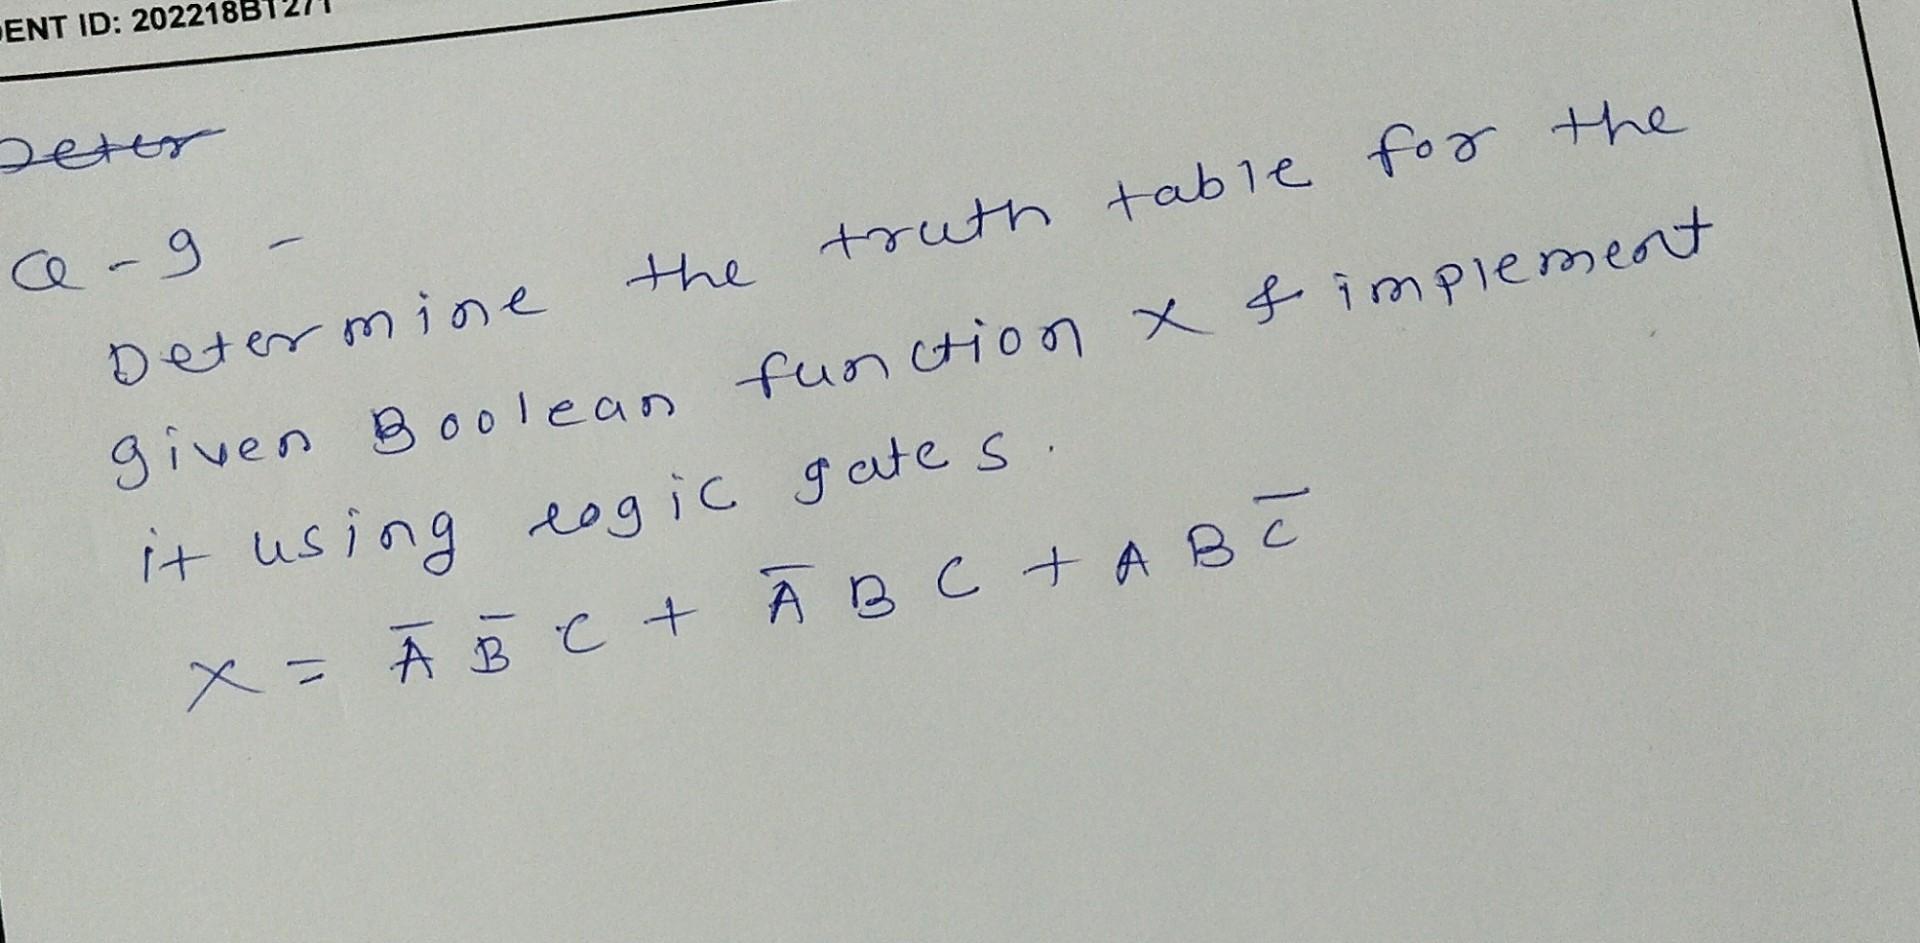 ENT ID: 202218BT271
Deter
Q-9 -
Determine the truth table for the
given Boolean function X & implement
it using logic gates.
X = A̅ B̅ C + A̅ B C + A B C̅